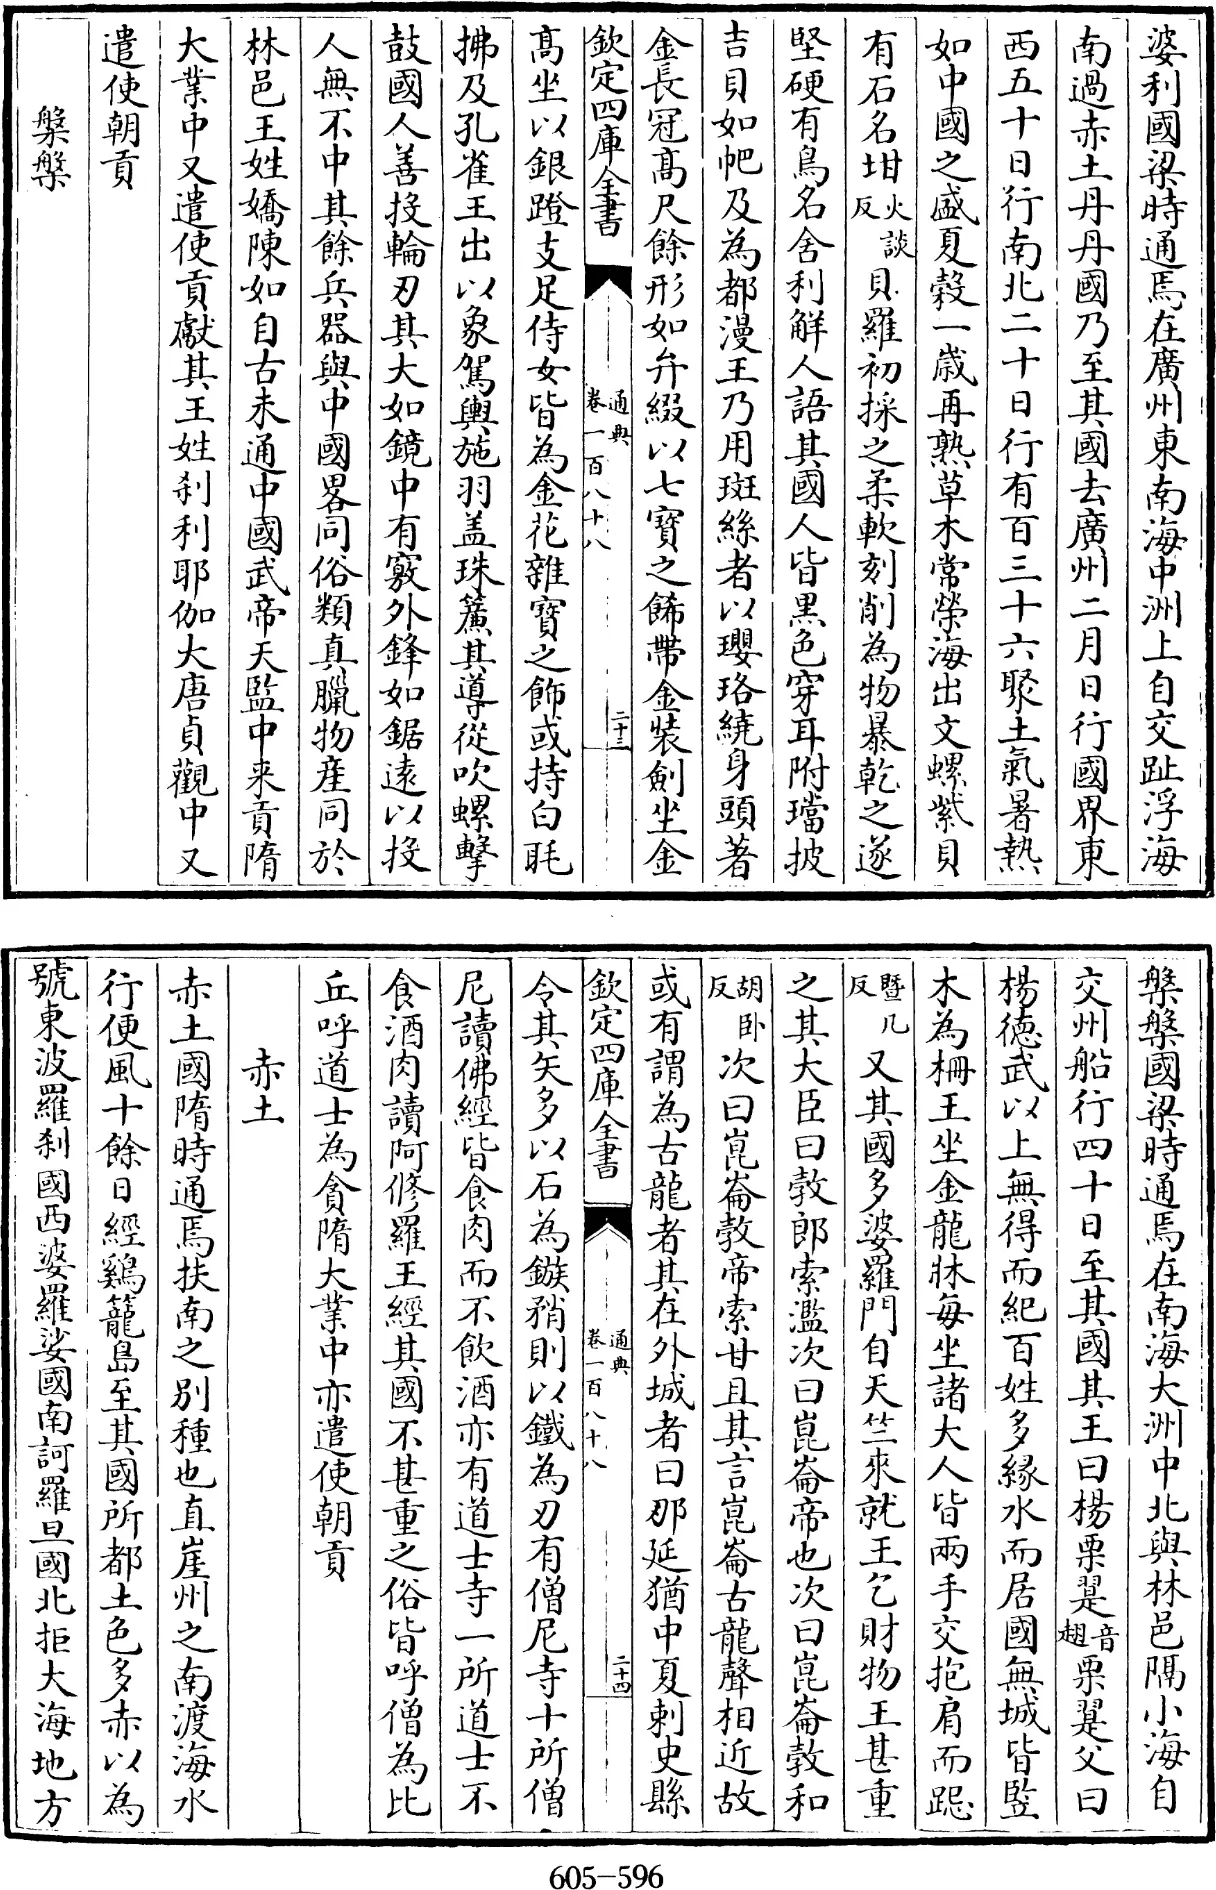 婆利國梁時通焉在廣州東南海中洲上自交趾浮海
南過赤土丹丹國乃至其國去廣州二月日行國界東
西五十日行南北二十日行有百三十六聚土氣暑熱
如中國之盛夏穀一歲再熟草木常榮海出文螺紫貝
有石名坩火談反貝羅初採之柔軟刻削為物暴乾之遂
堅硬有鳥名舍利解人語其國人皆黑色穿耳附璫披
吉貝如帊及為都漫王乃用斑絲者以瓔珞繞身頭著
金長冠高尺餘形如弁綴以七寶之飾帶金裝劍坐金
欽定四庫全書 通典 卷一百八十八 二十三
高坐以銀蹬支足侍女皆為金花雜寶之飾或持白毦
拂及孔雀王出以象駕輿施羽盖珠簾其導從吹螺擊
鼓國人善投輪刃其大如鏡中有竅外鋒如鋸遠以投
人無不中其餘兵器與中國畧同俗類真臘物產同於
林邑王姓嬌陳如自古未通中國武帝天監中来貢隋
大業中又遣使貢獻其王姓刹利耶伽大唐貞觀中又
遣使朝貢
槃槃
槃槃國梁時通焉在南海大洲中北與林邑隔小海自
交州船行四十日至其國其王曰楊栗翨音翅栗翨父曰
楊德武以上無得而紀百姓多緣水而居國無城皆竪
木為柵王坐金龍牀每坐諸大人皆兩手交抱肩而跽
暨几反又其國多婆羅門自天竺來就王乞財物王甚重
之其大臣曰敦郎索濫次曰崑崙帝也次曰崑崙敦和
胡卧反次曰崑崙敦帝索甘且其言崑崙古龍聲相近故
或有謂為古龍者其在外城者曰那延猶中夏刺史縣
欽定四庫全書 通典 卷一百八十八 二十四
令其矢多以石為鏃矟則以鐵為刃有僧尼寺十所僧
尼讀佛經皆食肉而不飲酒亦有道士寺一所道士不
食酒肉讀阿修羅王經其國不甚重之俗皆呼僧為比
丘呼道士為貪隋大業中亦遣使朝貢
赤土
赤土國隋時通焉扶南之别種也直崖州之南渡海水
行便風十餘日經鷄籠島至其國所都土色多赤以為
號東波羅刹國西婆羅娑國南訶羅旦國北拒大海地方
605-596